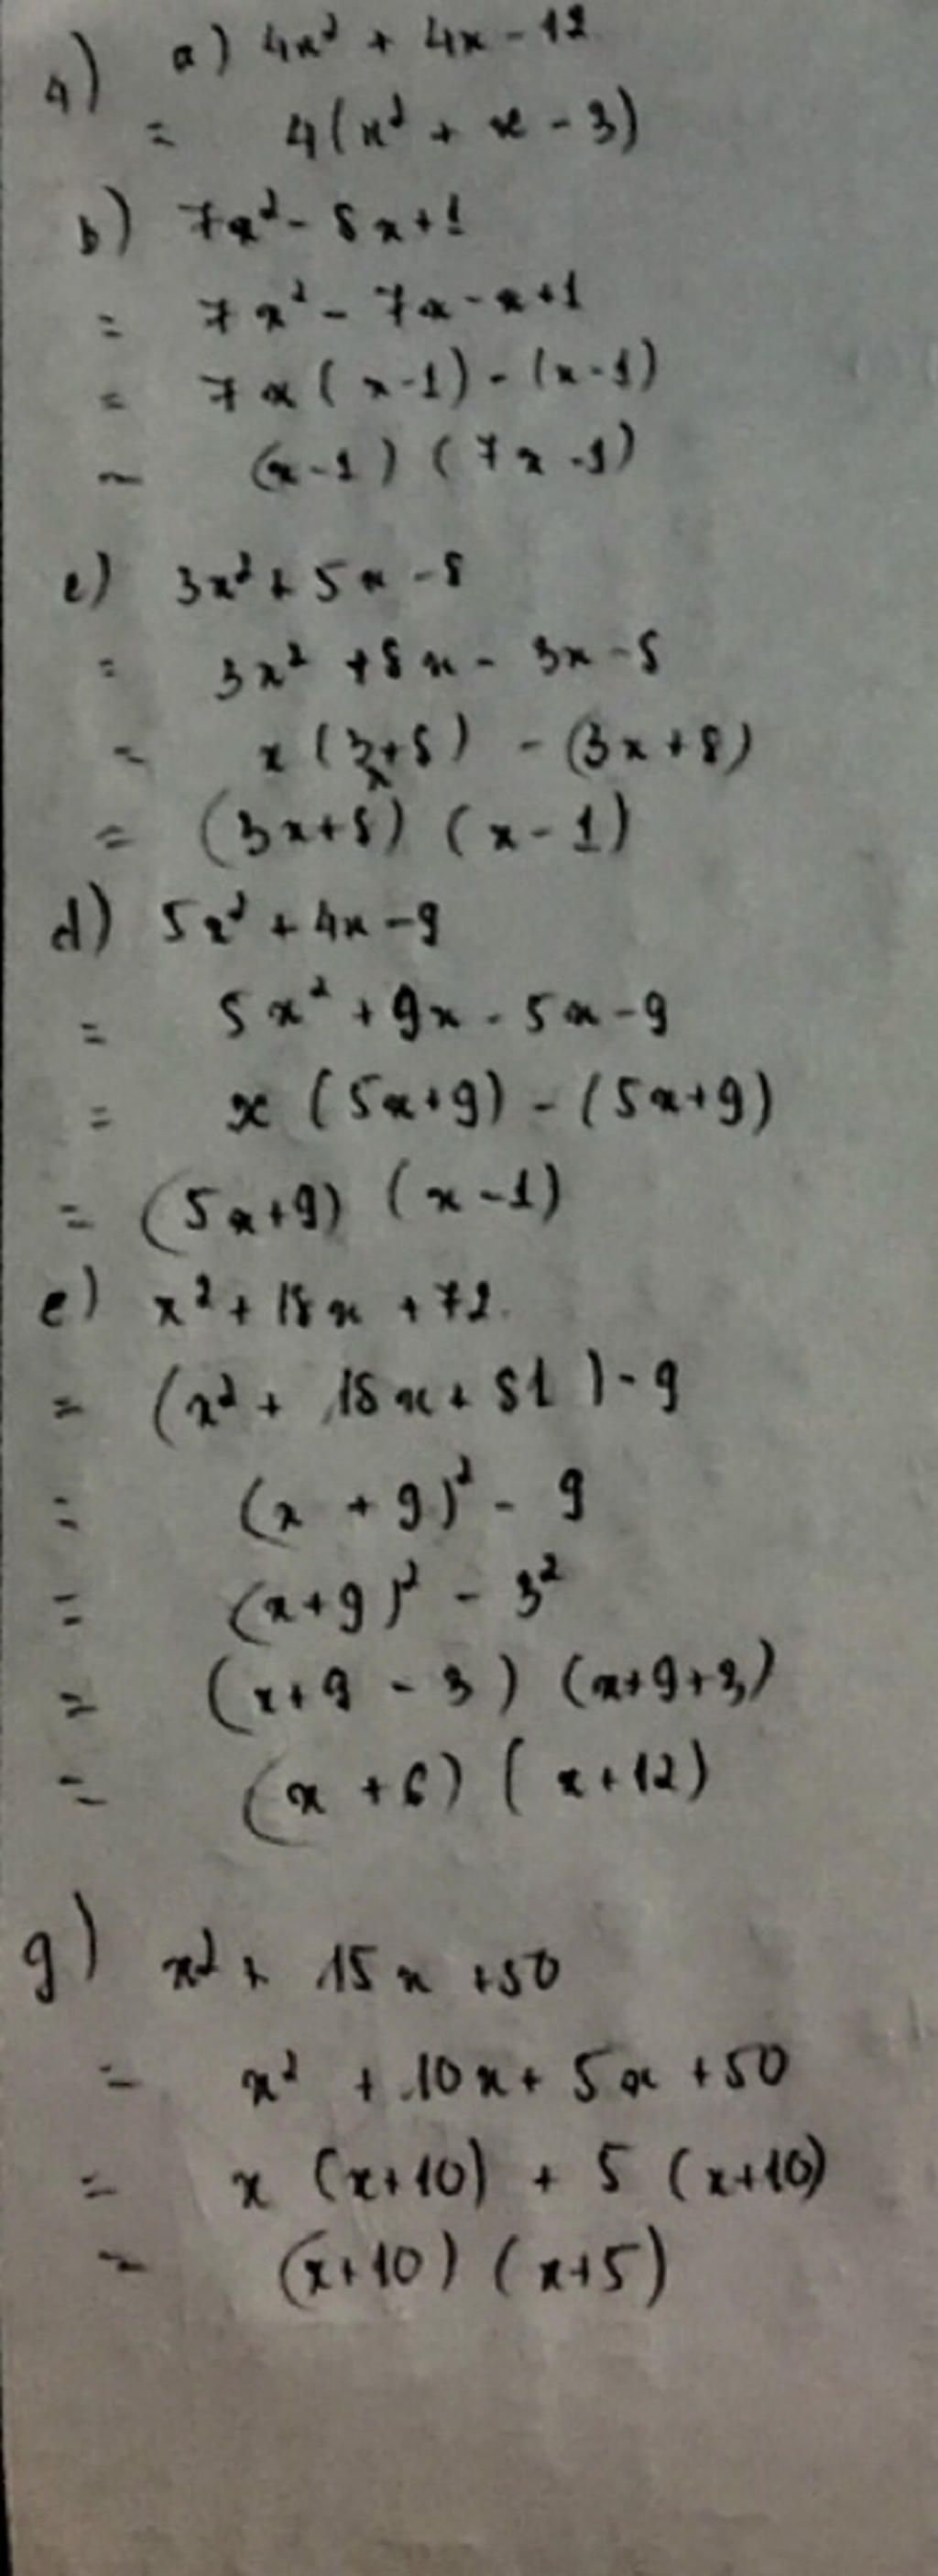 4) a) 4x² + 4x - 12
= 4(x² + x - 3)
b) 7x² - 8x + 1
= 7x² - 7x - x + 1
= 7x(x-1) - (x-1)
= (x-1)(7x-1)
c) 3x² + 5x - 8
= 3x² + 8x - 3x - 8
= x(3x+8) - (3x+8)
= (3x+8)(x-1)
d) 5x² + 4x - 9
= 5x² + 9x - 5x - 9
= x(5x+9) - (5x+9)
= (5x+9)(x-1)
e) x² + 18x + 72.
= (x² + 18x + 81) - 9
= (x + 9)² - 9
= (x+9)² - 3²
= (x+9 - 3)(x+9+3)
= (x + 6)(x+12)
g) x² + 15x + 50
= x² + 10x + 5x + 50
= x(x+10) + 5(x+10)
= (x+10)(x+5)